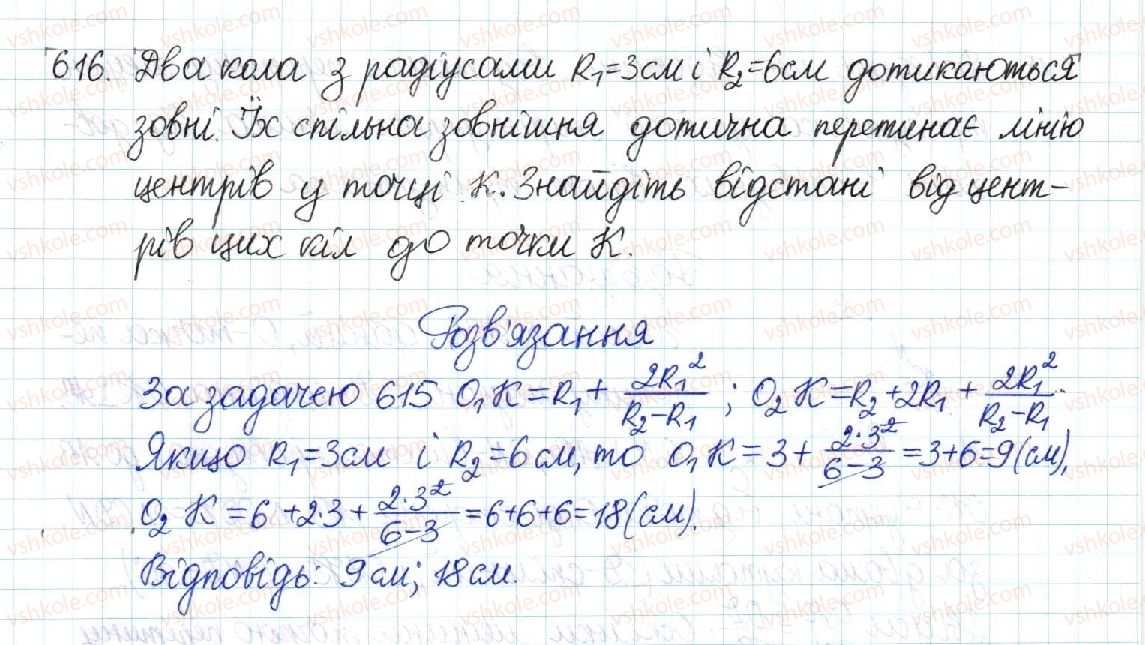 616. Два кола з радіусами R₁=3см і R₂=6см дотикаються
зовні. Їх спільна зовнішня дотична перетинає лінію
центрів у точці K. Знайдіть відстані від цент-
рів цих кіл до точки K.
Розв'язання
За задачею 615 O₁K=R₁+ 2R₁²/(R₂-R₁); O₂K=R₂+2R₁+ 2R₁²/(R₂-R₁).
Якщо R₁=3см і R₂=6см, то O₁K=3+ 2·3²/(6-3) =3+6=9(см),
O₂K=6+2·3+ 2·3²/(6-3) =6+6+6=18(см).
Відповідь: 9см; 18см.